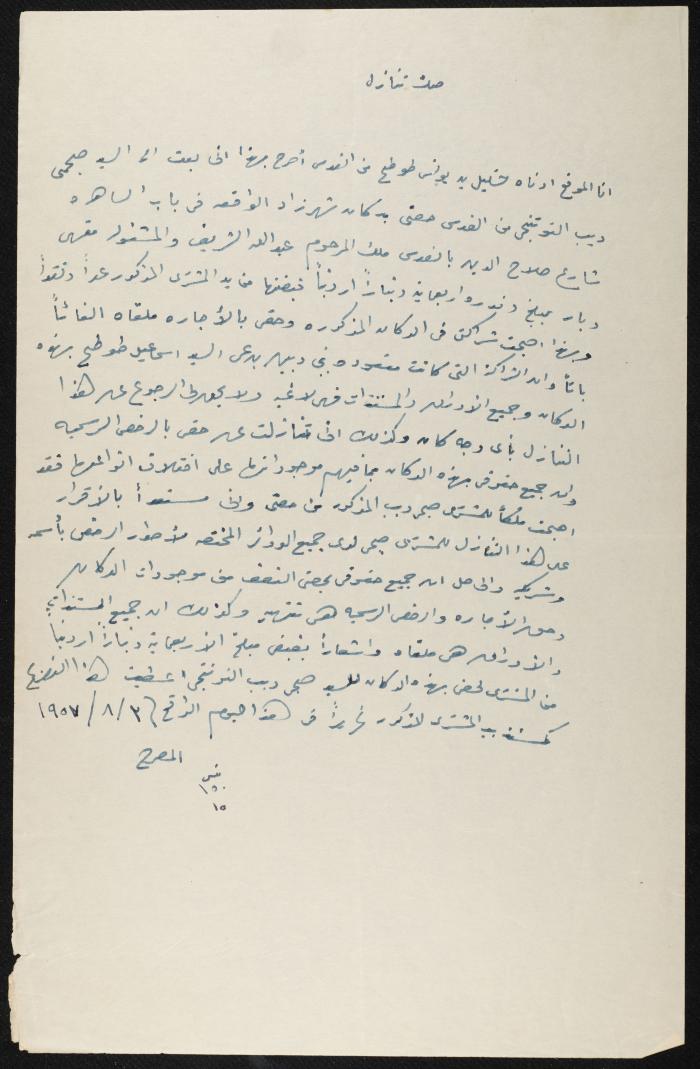 صك تنازل
انا الموقع ادناه خليل يونس طوطح من القدس أصرح بهذا انى بعت الى السيد صبحى
ديب التوتنجى من القدس حصتى بدكان شهرزاد الواقعه فى باب الساهره
شارع صلاح الدين بالقدس ملك المرحوم عبدالله الشريف والمشغوله مقهى
وبار بمبلغ وقدره اربعماية ديناراً اردنياً قبضتها من يد المشترى المذكور عداً ونقداً
وبهذا اصبحت شراكتى فى الدكان المذكوره وحقى بالأجاره ملغاه الغائاً
باتاً وان الشراكة التى كانت معقوده بينى وبين المدعى السيد اسماعيل طوطح بهذه
الدكان وجميع الاوراق والمستندات فهى لاغيه ولا يحق لى الرجوع عن هذا
التنازل بأى وجه كان وكذلك انى تنازلت عن حقى بالرخص الرسميه
وان جميع حقوقى بهذه الدكان بما فيهم موجوداتها على اختلاف انواعها فقد
اصبحت ملكاً للمشترى صبحى ديب المذكور من حقى وانى مستعداً بالأقرار
على هذا التنازل للمشترى صبحى لدى جميع الدوائر المختصه لأصدار الرخص بأسمه
وشريكه والحاصل ان جميع حقوقى بحصتى النصف من موجودات الدكان
وحق الأجاره والرخص الرسميه هى منتهيه وكذلك ان جميع المستندات
والاوراق هى ملغاه واشعاراً بقبضى مبلغ الاربعماية ديناراً اردنياً
من المشترى لحصتى بهذه الدكان للسيد صبحى ديب التوتنجى اعطيت هذا التصريح
كمستند بيد المشترى المذكور تحريراً فى هذا اليوم الواقع ٣١/٨/١٩٥٧
المصرح
١٥